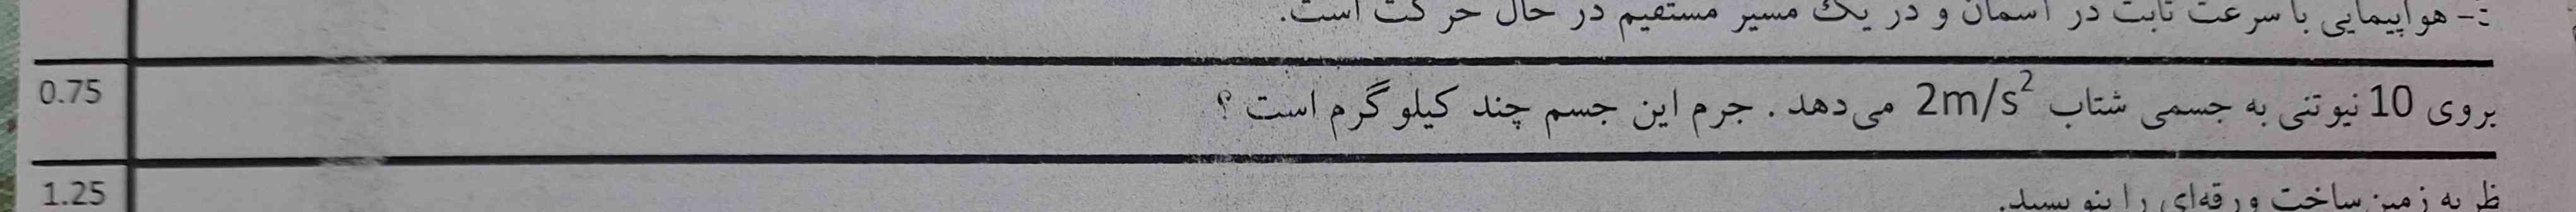 ت- هواپیمایی با سرعت ثابت در آسمان و در یک مسیر مستقیم در حال حرکت است.
بروی 10 نیوتنی به جسمی شتاب 2m/s² می‌دهد . جرم این جسم چند کیلوگرم است ؟
0.75
ظر به زمین ساخت ورقه‌ای را بنویسید.
1.25